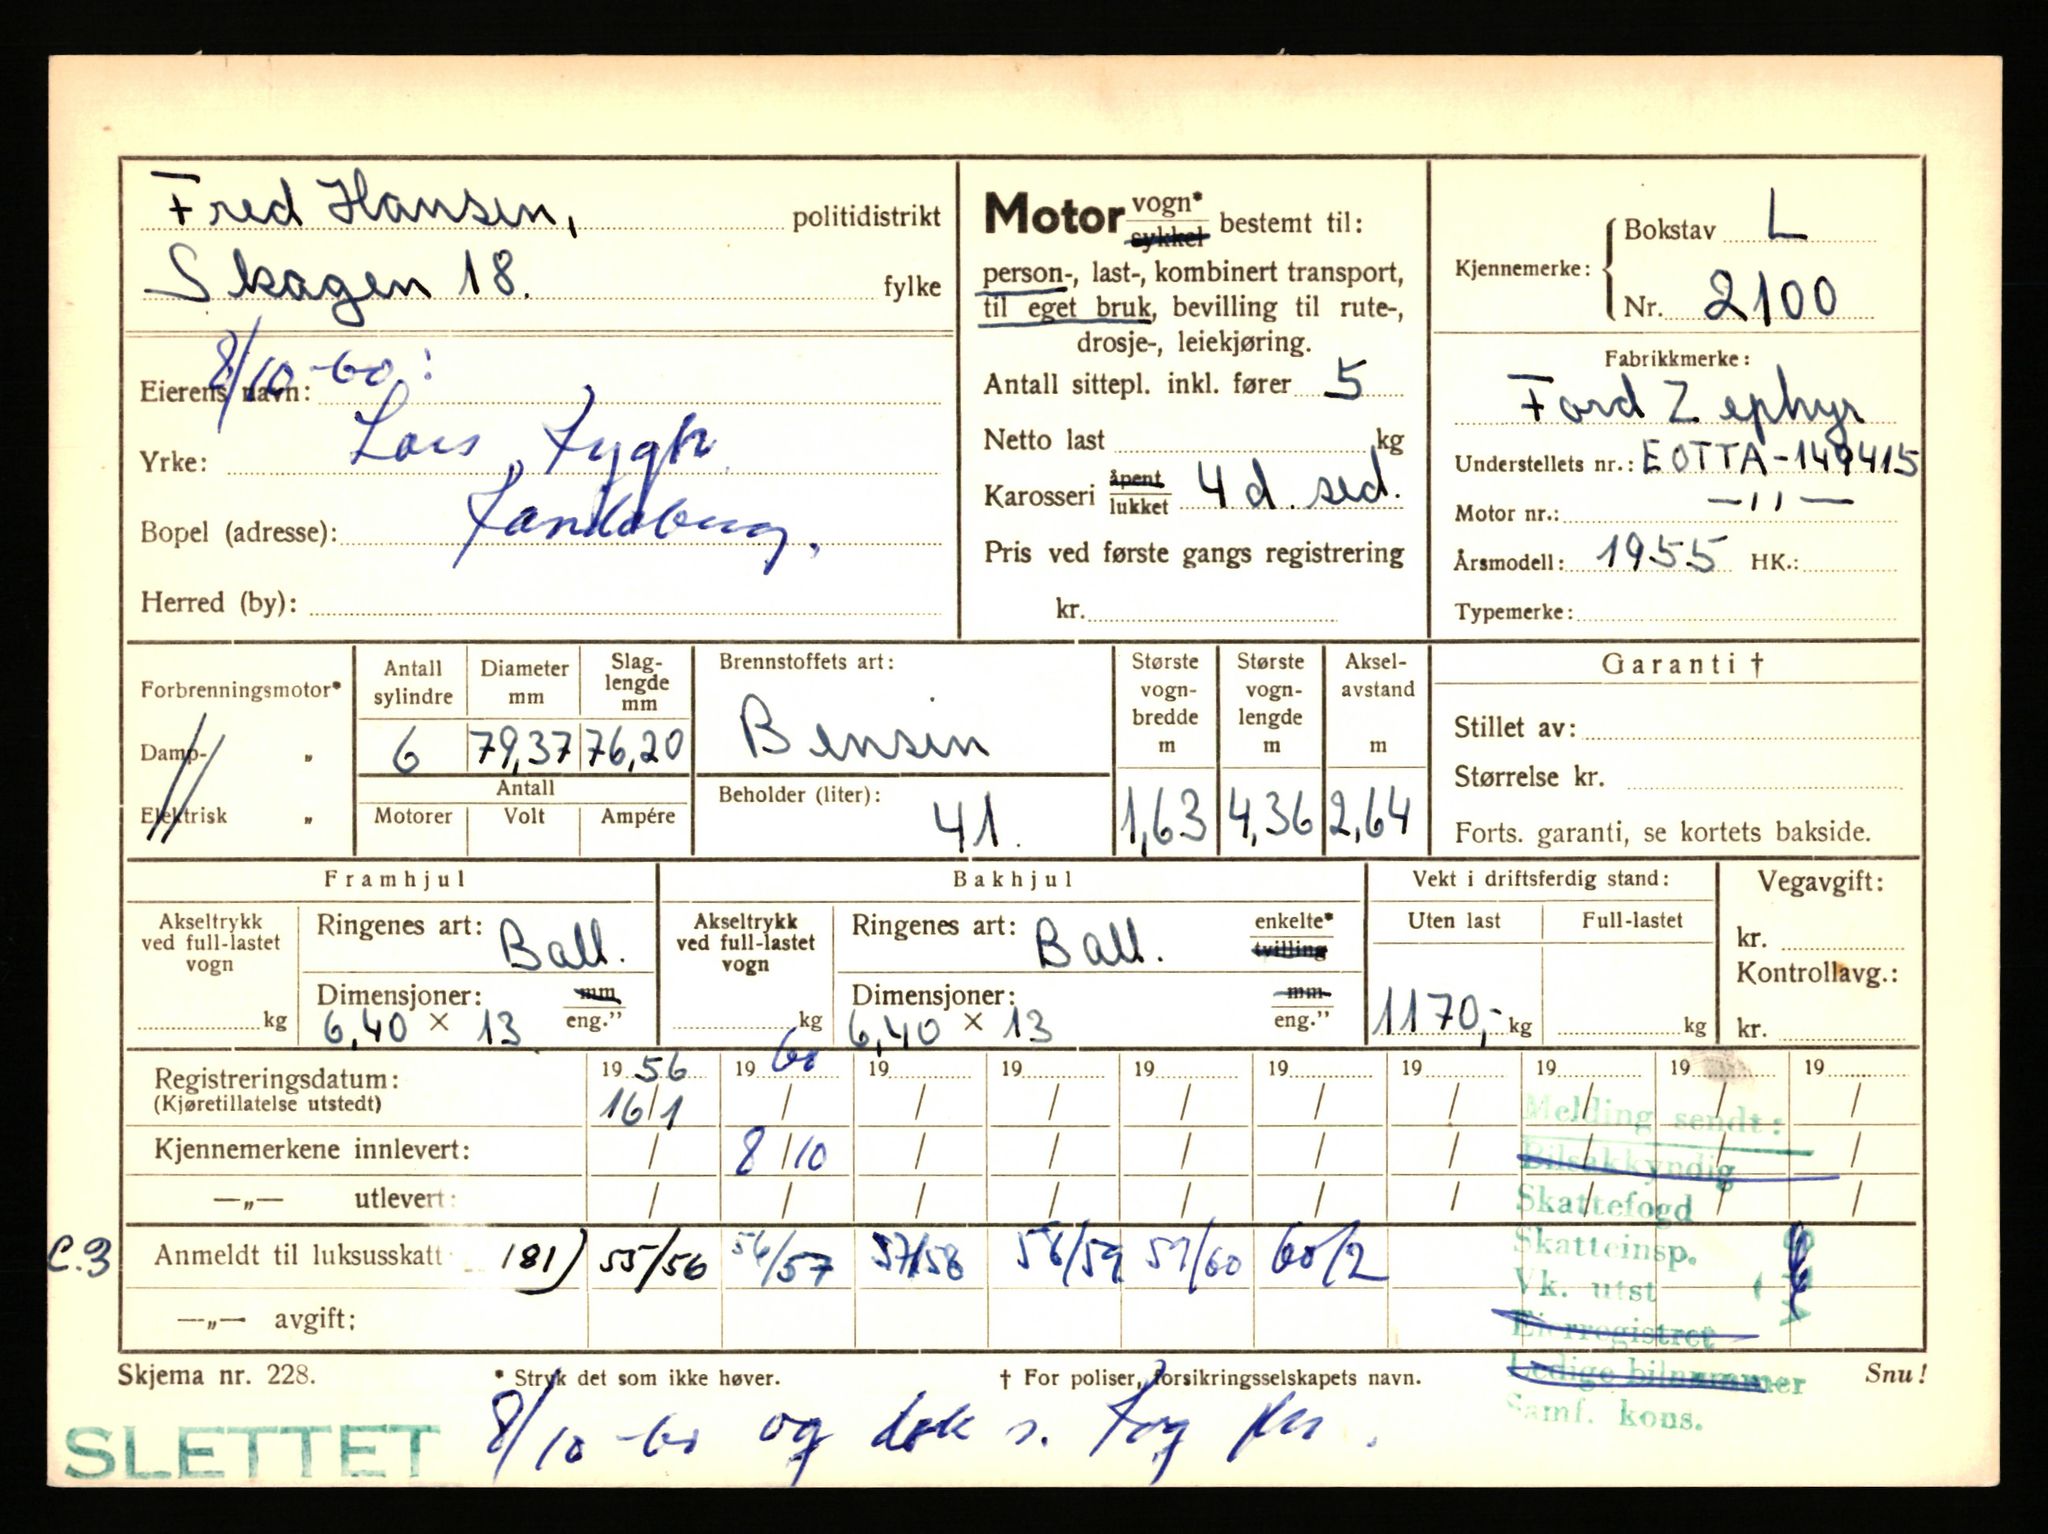 Fred Hansen, politidistrikt
Skagen 18. fylke
8/10-60:
Eierens navn:
Yrke: Lars
Bopel (adresse):
Herred (by):
Motor vogn* sykkel bestemt til:
person-, last-, kombinert transport,
til eget bruk, bevilling til rute-,
drosje-, leiekjøring.
Antall sittepl. inkl. fører 5
Netto last kg
Karosseri åpent lukket 4 d. sed.
Pris ved første gangs registrering
kr.
Kjennemerke: Bokstav L
Nr. 2100
Fabrikkmerke:
Ford Zephyr
Understellets nr.: EOTTA-149415
Motor nr.: —"—
Årsmodell: 1955 HK.:
Typemerke:
Forbrenningsmotor*
Damp- „
Elektrisk „
Antall sylindre
6
Diameter mm
79,37
Slag-lengde mm
76,20
Antall
Motorer Volt Ampére
Brennstoffets art:
Bensin
Beholder (liter):
41.
Største vogn-bredde m
1,63
Største vogn-lengde m
4,36
Aksel-avstand m
2,64
Garanti †
Stillet av:
Størrelse kr.
Forts. garanti, se kortets bakside.
Framhjul
Akseltrykk ved full-lastet vogn
kg
Ringenes art: Ball.
Dimensjoner: mm
6,40 × 13 eng."
Bakhjul
Akseltrykk ved full-lastet vogn
kg
Ringenes art: Ball. enkelte* tvilling
Dimensjoner: mm
6,40 × 13 eng."
Vekt i driftsferdig stand:
Uten last Full-lastet
1170,- kg kg
Vegavgift:
kr.
Kontrollavg.:
kr.
Registreringsdatum: 19 56 19 60 19 19 19 19 19 19 19 19
(Kjøretillatelse utstedt) 16/1 / / / / / / / / /
Kjennemerkene innlevert: / 8/10 / / / / / / / /
—„— utlevert: / / / / / / / / / /
C.3 Anmeldt til luksusskatt 181) 55/56 56/57 57/58 58/59 59/60 60/2
—„— avgift:
Melding sendt:
Bilsakkyndig
Skattefogd
Skatteinsp.
Vk. utst
Eierregistret
Ledige bilnummer
Samf. kons.
Skjema nr. 228. * Stryk det som ikke høver. † For poliser, forsikringsselskapets navn. Snu!
SLETTET 8/10-60 og